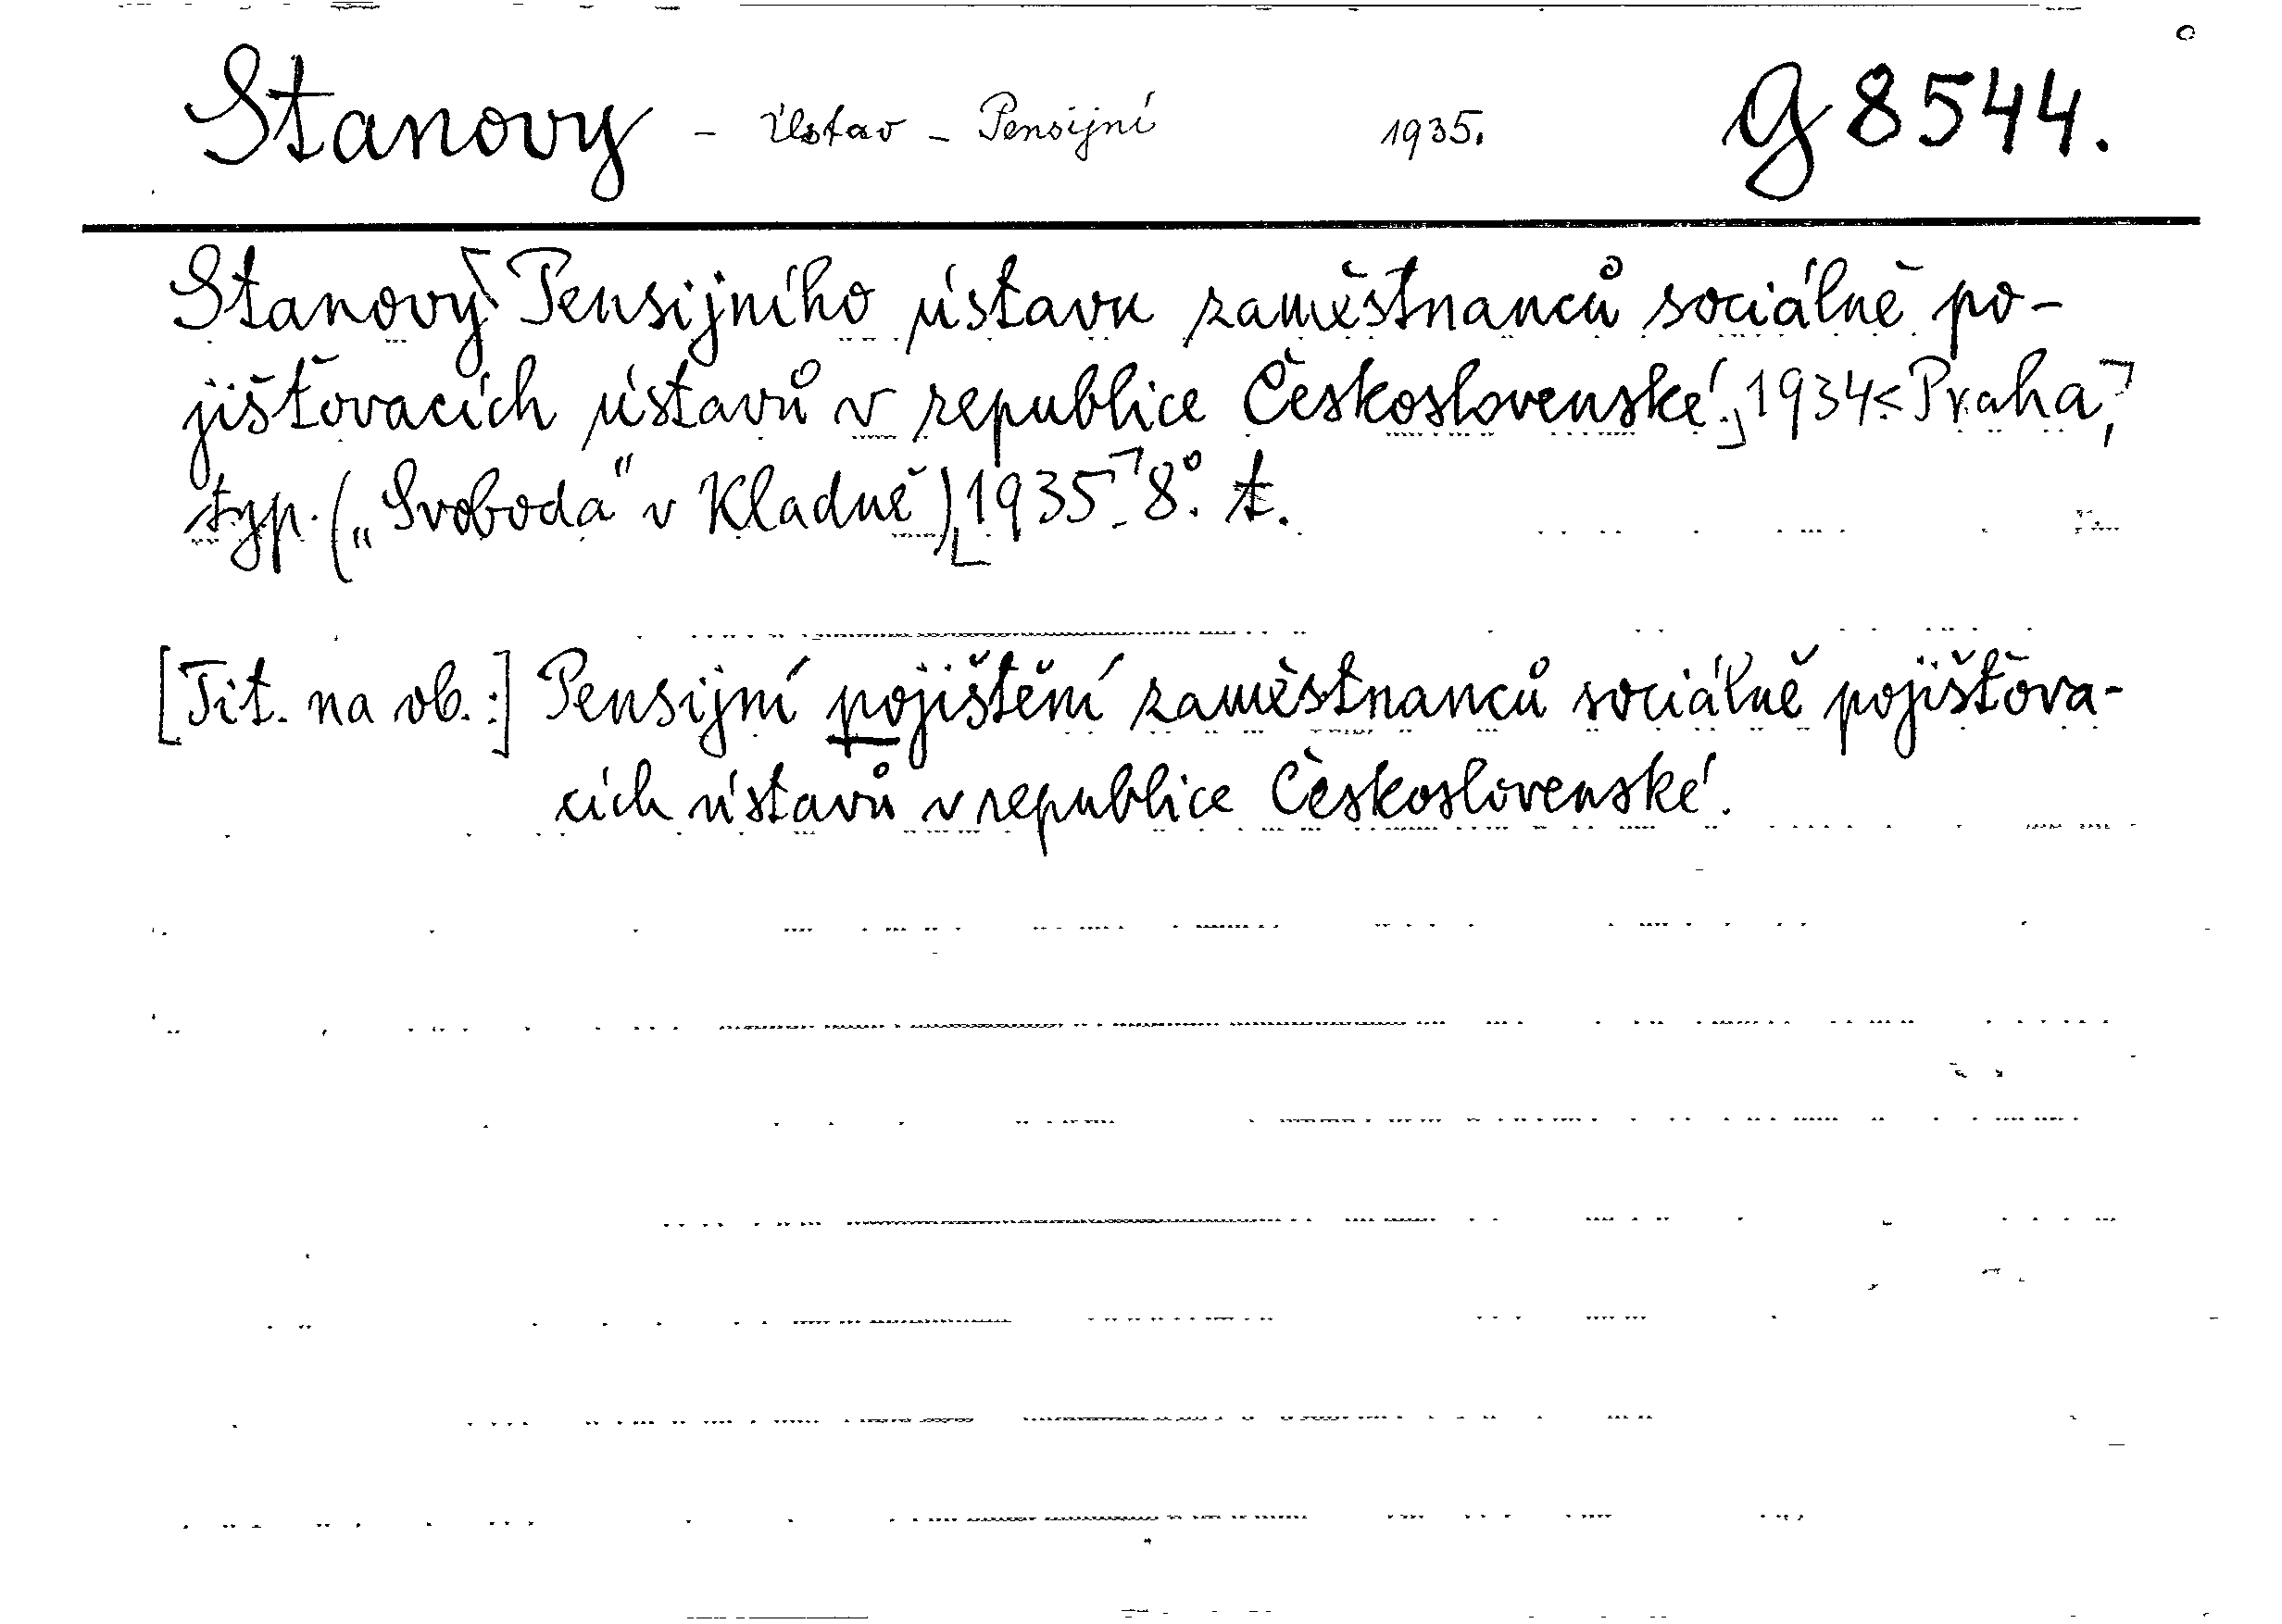 Stanovy - Ústav - Pensijní 1935. G 8544.
Stanovy Pensijního ústavu zaměstnanců sociálně po-
jišťovacích ústavů v republice Československé. 1934. Praha,
typ. („Svoboda“ v Kladně) 1935. 8°. t.
[Tit. na ob.:] Pensijní pojištění zaměstnanců sociálně pojišťova-
cích ústavů v republice Československé.